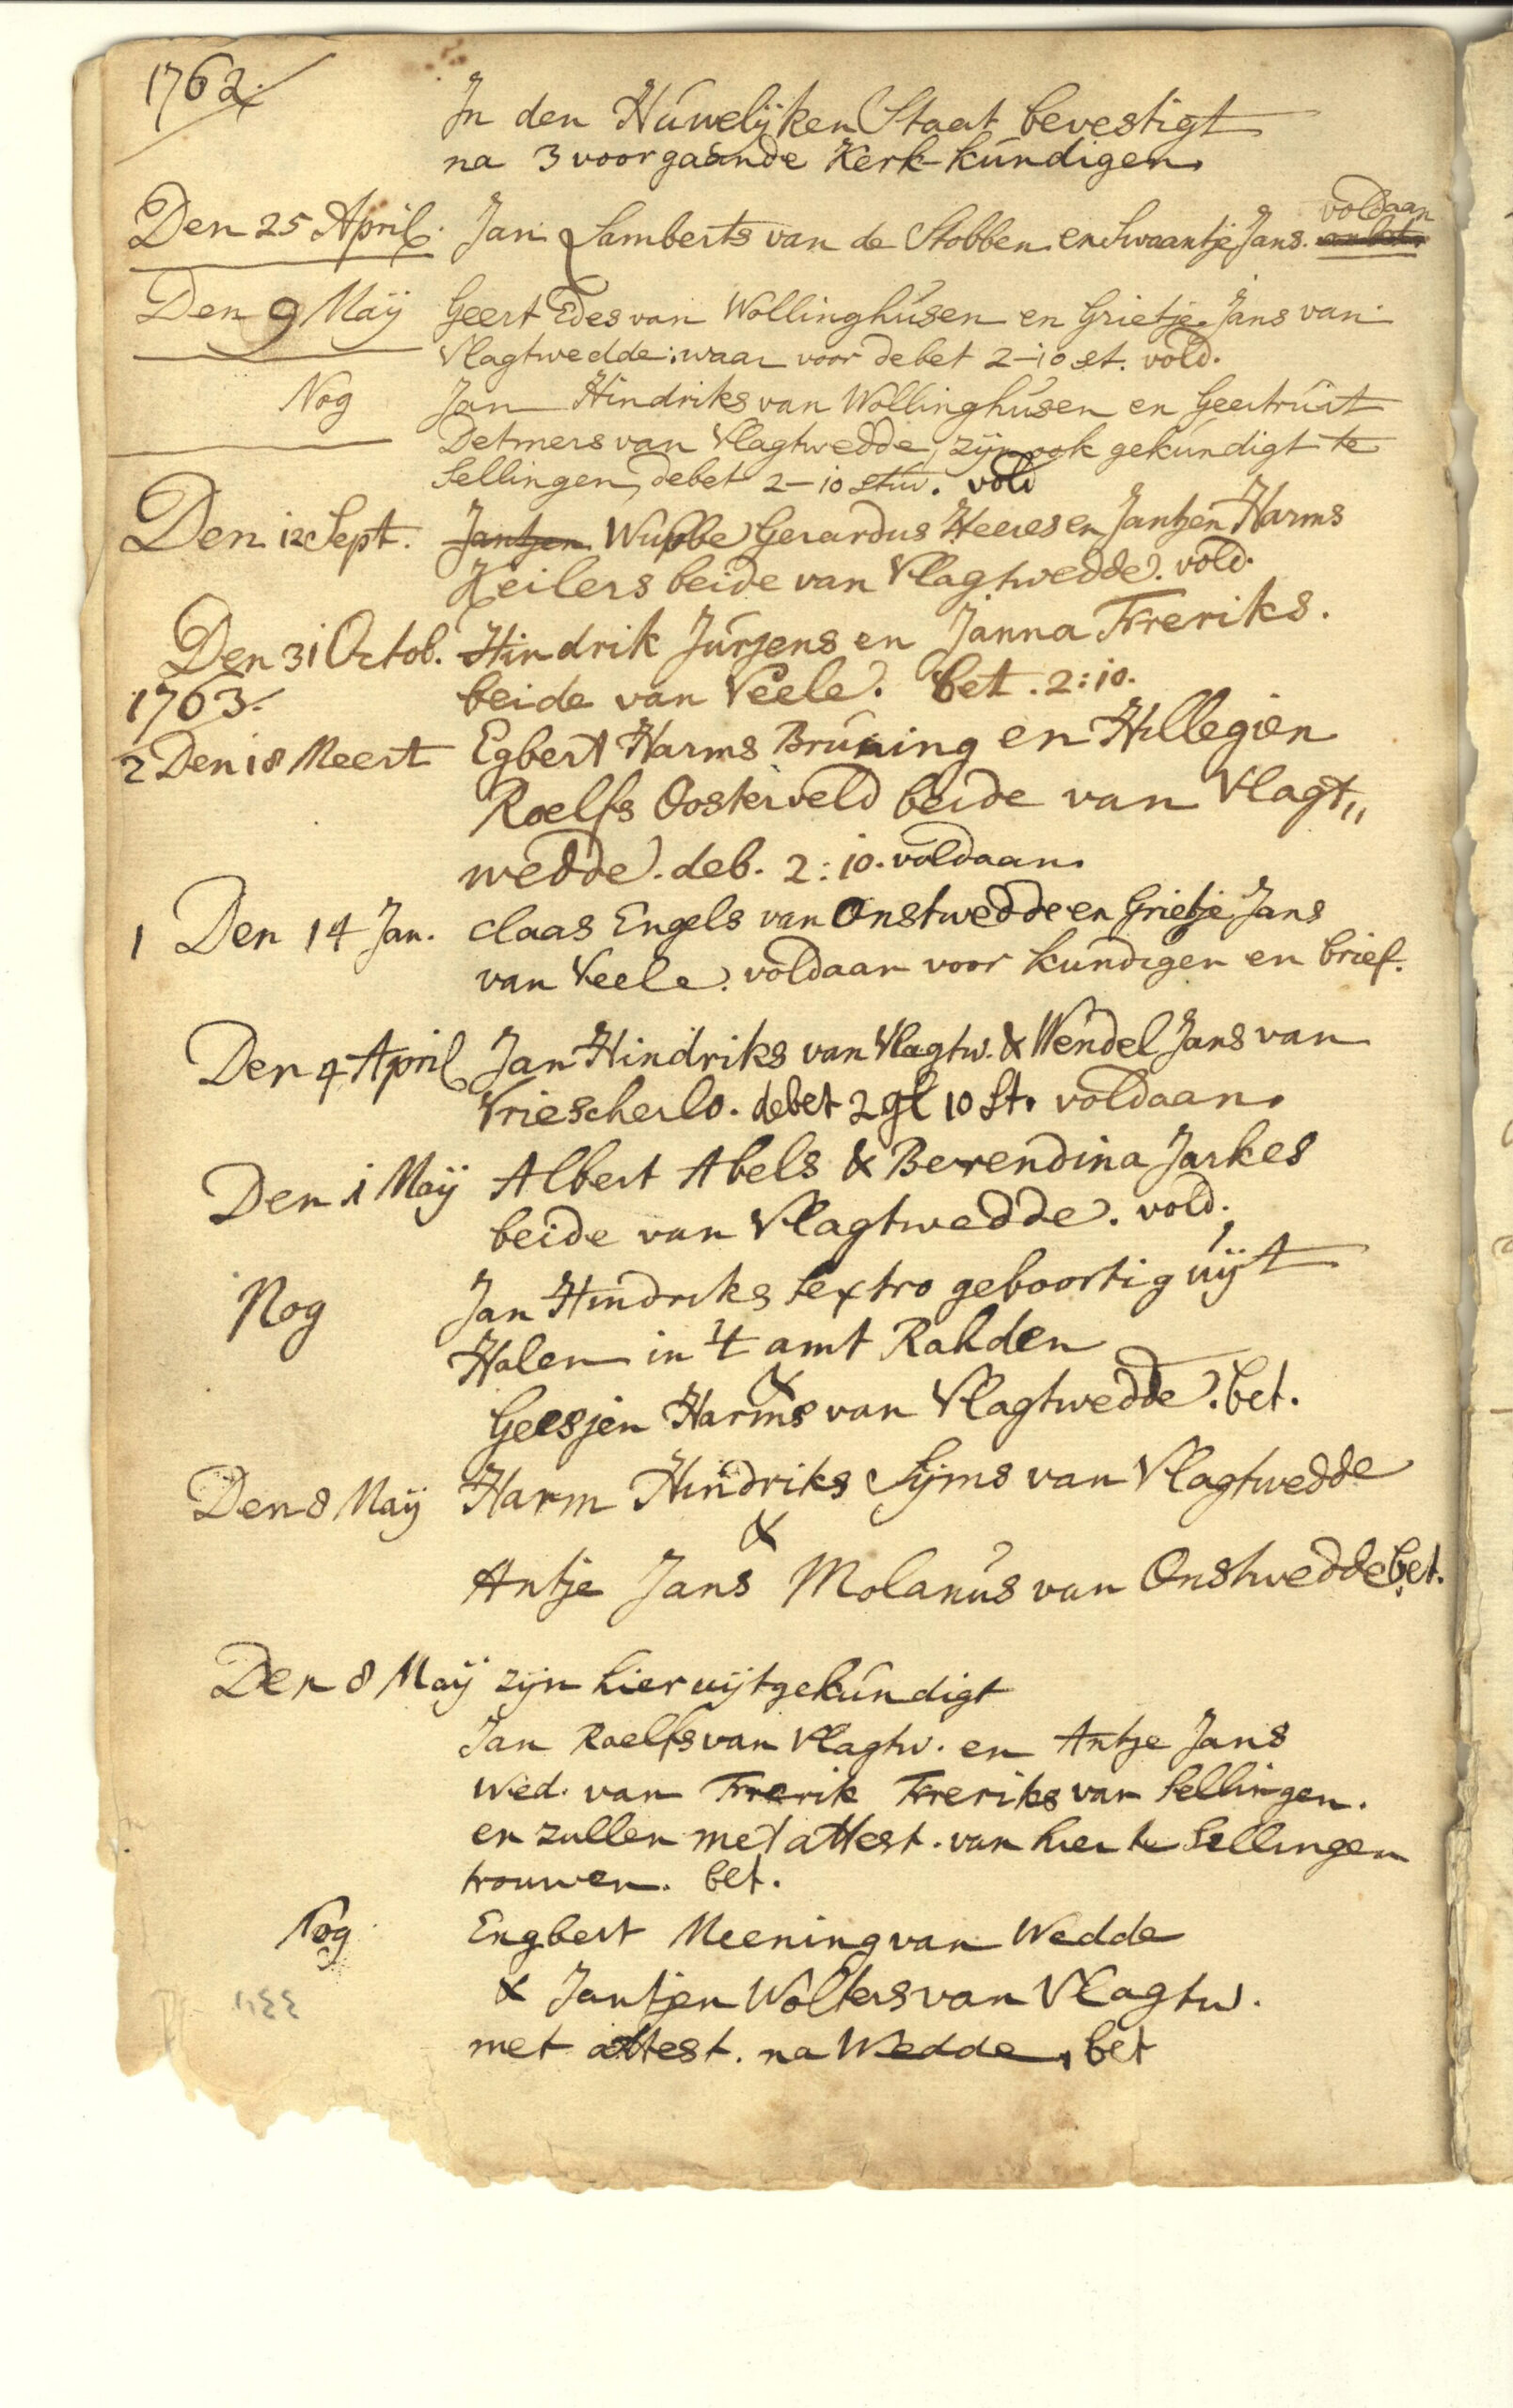 1762.
In den Húwelijken Staat bevestigt
na 3 voorgaande Kerk-kúndigen
Den 25 April. Jan Lamberts van de Stobben en Swaantje Jans. voldaan
Den 9 Maij Geert Edes van Wollinghúsen en Grietje Jans van
Vlagtwedde: waar voor debet 2-10 st. vold.
Nog Jan Hindriks van Wollinghúsen en Geertrúit
Detmers van Vlagtwedde, zijn ook gekúndigt te
Sellingen, debet 2-10 stuv. vold
Den 12 Sept. Jantjen Wubbe Gerardus Heeres en Jantjen Harms
Keilers beide van Vlagtwedde. vold.
Den 31 Octob. Hindrik Júrjens en Janna Frerik​s.
1763. beide van Veele. bet. 2:10.
2 Den 18 Meert Egbert Harms Brúning en Hillegien
Roelfs Oosterveld beide van Vlagt„
wedde. deb. 2:10. voldaan.
1 Den 14 Jan. Claas Engels van Onstwedde en Grietje Jans
van Veele. voldaan voor kundigen en brief.
Den 4 April Jan Hindriks van Vlagtw. & Wendel Jans van
Vriescherlo. debet 2 gl 10 St. voldaan.
Den 1 Maij Albert Abels & Berendina Jarkes
beide van Vlagtwedde. vold.
Nog Jan Hindriks Sextro geboortig uijt
Halen in 't amt Rahden
&
Geesjen Harms van Vlagtwedde. bet.
Den 8 Maij Harm Hindriks Sijms van Vlagtwedde
&
Antje Jans Molanús van Onstwedde bet.
Den 8 Maij zijn hier uijtgekúndigt
Jan Roelfs van Vlagtw. en Antje Jans
Wed. van Frerik Freriks van Sellingen.
en zullen met attest. van hier te Sellingen
trouwen. bet.
Nog Engbert Meening van Wedde
& Jantjen Wolters van Vlagtw.
met attest. na Wedde, bet